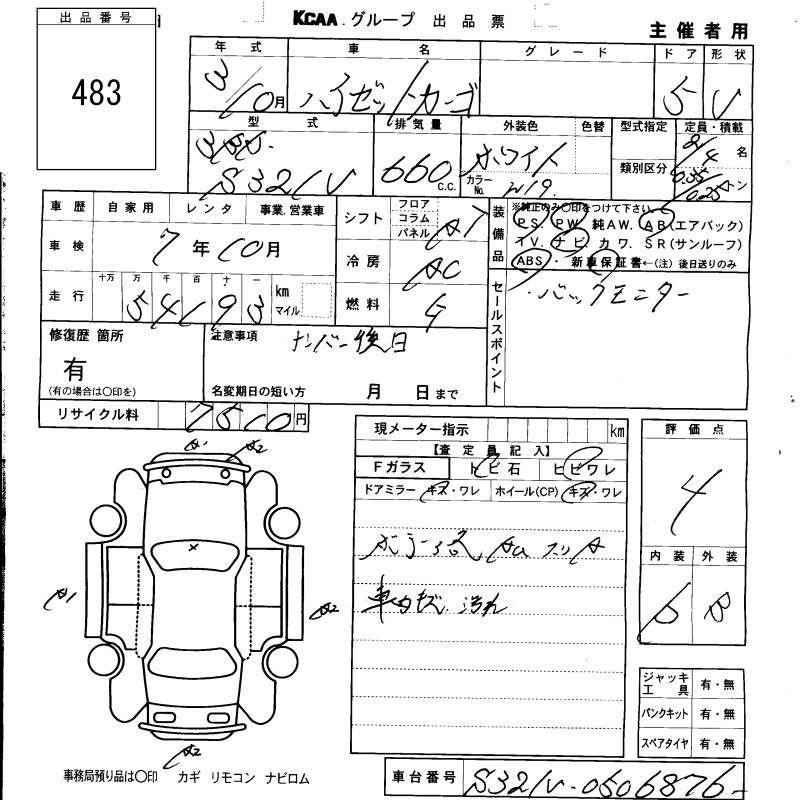 出品番号
483
KCAA.グループ 出品票
主催者用
年式 車名 グレード ドア 形状
3/10月 ハイゼットカーゴ 5 V
型式 排気量 外装色 色替 型式指定 定員・積載
3BD- S321V 660 c.c. ホワイト カラーNo. W19 類別区分 2/4名 0.35/0.25トン
車歴 自家用 レンタ 事業.営業車
車検 7年10月
走行 十万 万 千 百 十 一 km マイル
54193
シフト フロア コラム パネル AT
冷房 AC
燃料 G
装備品 ※純正のみ○印をつけて下さい。
PS. PW 純AW. AB(エアバック)
TV. ナビ カワ. SR(サンルーフ)
ABS ・ 新車保証書←(注)後日送りのみ
セールスポイント
・バックモニター
修復歴 箇所
有
(有の場合は○印を)
注意事項
ナンバー後日
名変期日の短い方 月 日まで
リサイクル料 7510円
現メーター指示 km
【査定員記入】
Fガラス トビ石 ヒビワレ
ドアミラー キズ・ワレ ホイール(CP) キズ・ワレ
車内キズ.汚れ
評価点
4
内装 外装
b B
A1 A2
A1 A2
A2
ジャッキ工具 有・無
パンクキット 有・無
スペアタイヤ 有・無
事務局預り品は○印 カギ リモコン ナビロム
車台番号 S321V-0506876-